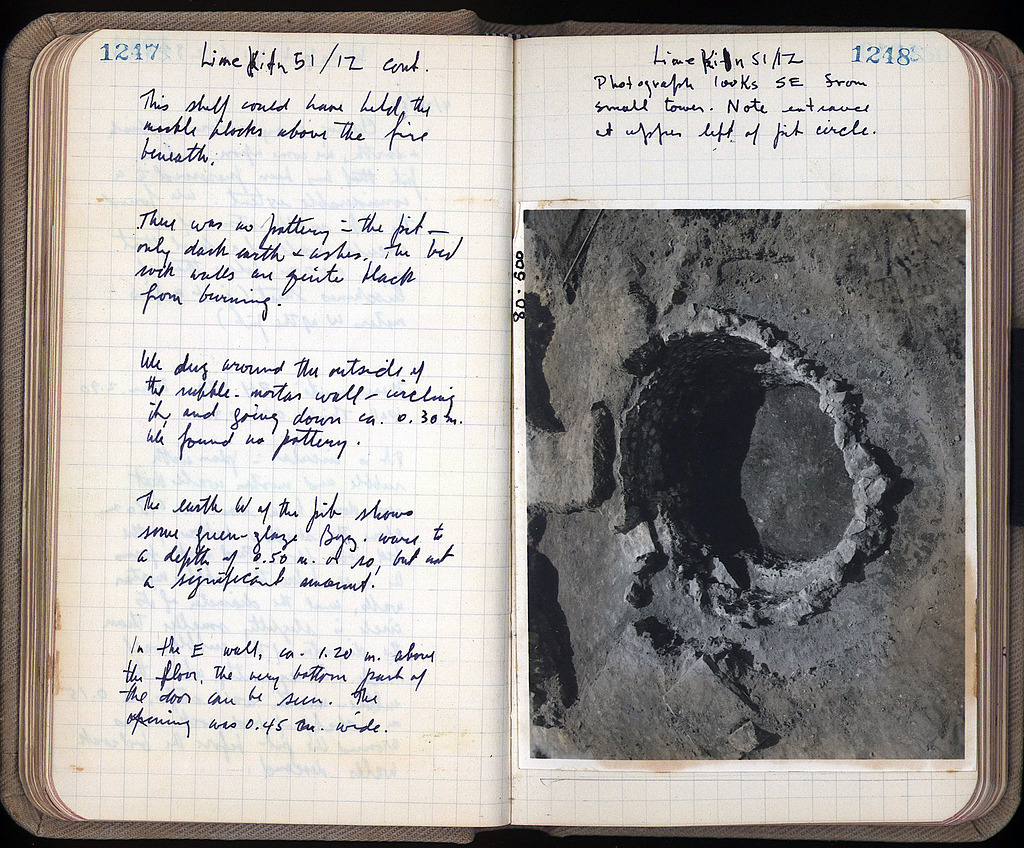 1247
Lime Kiln 51/12 cont.
This shelf could have held the
marble blocks above the fire
beneath.
There was no pottery in the pit —
only dark earth & ashes. The bed
rock walls are quite black
from burning.
We dug around the outside of
the rubble-mortar wall – circling
it, and going down ca. 0.30 m.
We found no pottery.
The earth W of the pit shows
some green-glaze Byz. ware to
a depth of 0.50 m. or so, but not
a significant amount.
In the E wall, ca. 1.20 m. above
the floor, the very bottom part of
the door can be seen. The
opening was 0.45 m. wide.
1248
Lime Kiln 51/12
Photograph looks SE from
small tower. Note entrance
at upper left of pit circle.